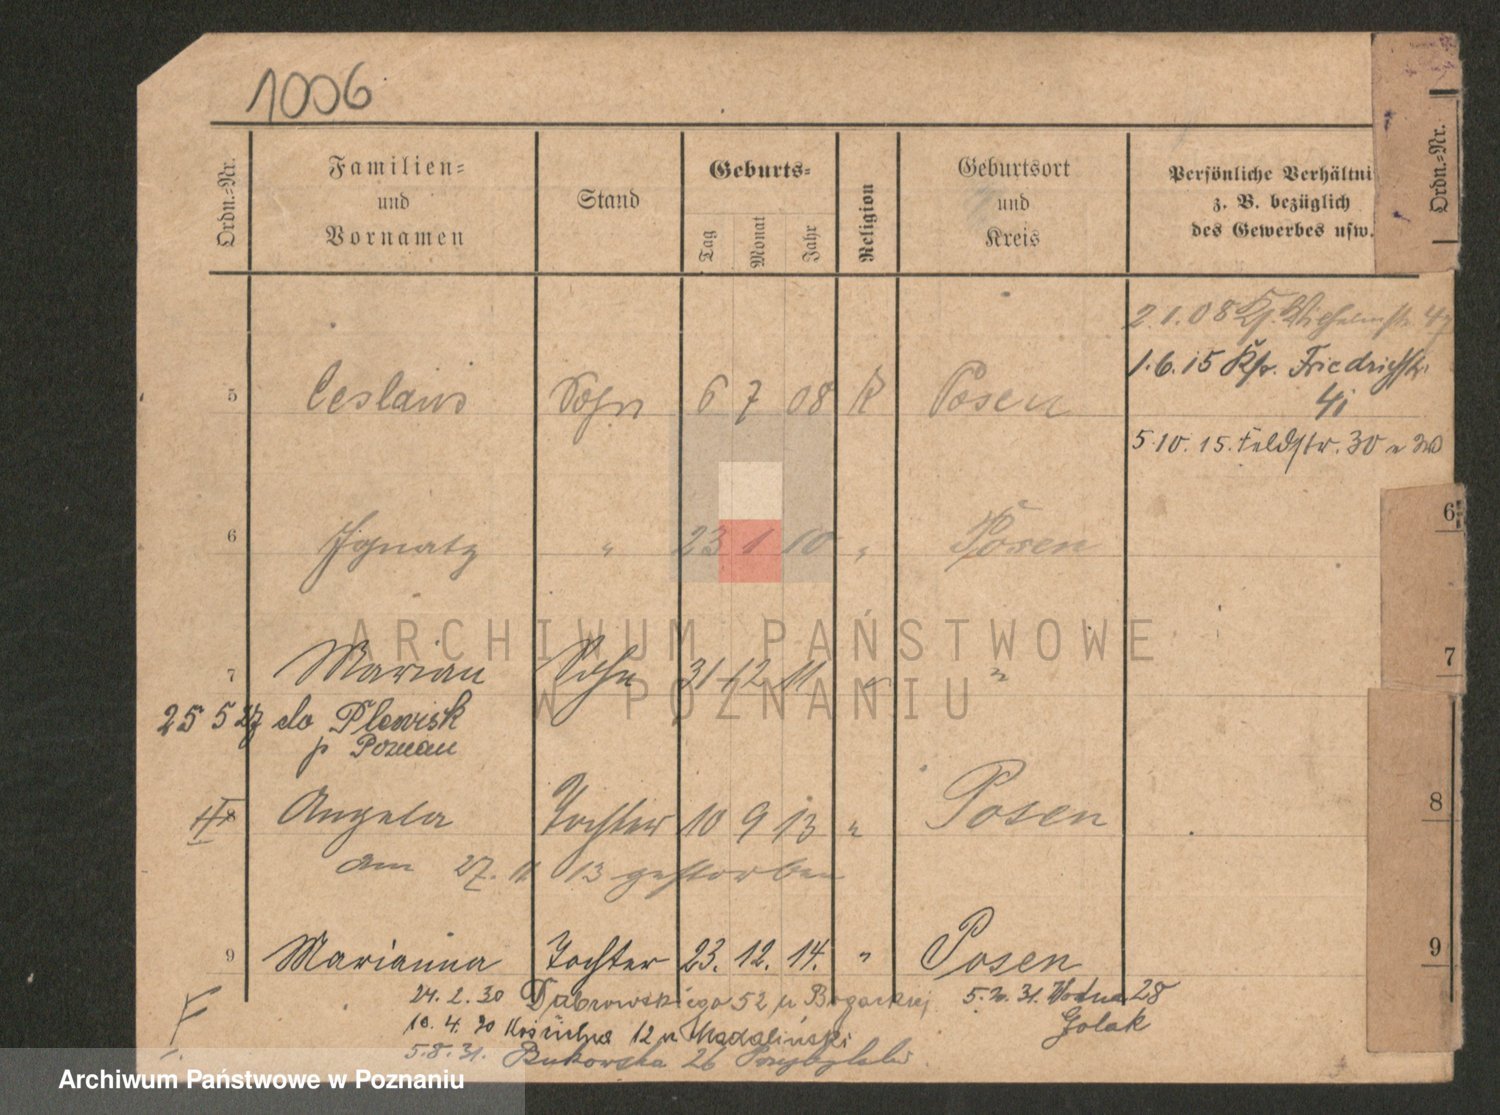 1006
Ordn.=Nr.
Familien=
und
Vornamen
Stand
Geburts=
Tag
Monat
Jahr
Religion
Geburtsort
und
Kreis
Persönliche Verhältni
z. B. bezüglich
des Gewerbes usw.
Ordn.=Nr.
2.1.08 Wilhelmstr.
1.6.15 Friedrichstr.
5 Ceslaus Sohn 6 7 08 K Posen
5.10.15. Feldstr. 30
6 Ignatz " 23 1 10 " Posen
6
7 Marian Sohn 31 12 11 " "
7
25 5 27 do Plewisk
p Poznan
Angela Tochter 10 9 13 " Posen
8
am 27. 11 13 gestorben
9 Marianna Tochter 23. 12. 14. " Posen
9
24. 2. 30 Dabrowskiego 52 u Bogackiej
31. Wodna 28
Golak
10. 4. 30 12 u Madaliński
5. 8. 31. Bukowska 26
ARCHIWUM PAŃSTWOWE
W POZNANIU
Archiwum Państwowe w Poznaniu